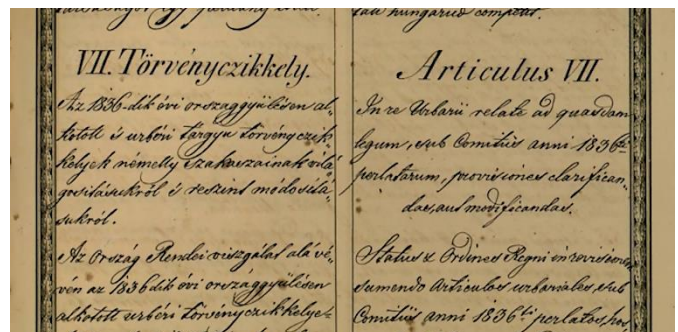 VII. Törvényczikkely.
Az 1836-dik évi országgyülésen al-
kotott 's urbéri tárgyu törvényczik-
kelyek némelly szakaszainak vilá-
gositásukról 's reszint módositá-
sukról.
Az Ország Rendei viszgálat alá vé-
vén az 1836dik évi országgyülésen
alkotott urbéri törvényczikkelye-
tali hungarico
Articulus VII.
In re Urbarii relate ad quasdam
legum, sub Comitiis anni 1836ti
perlatarum, provisiones clarifican-
das, aut modificandas.
Status & Ordines Regni in revisionem
sumendo Articulos urbariales, sub
Comitiis anni 1836ti perlatos, hos